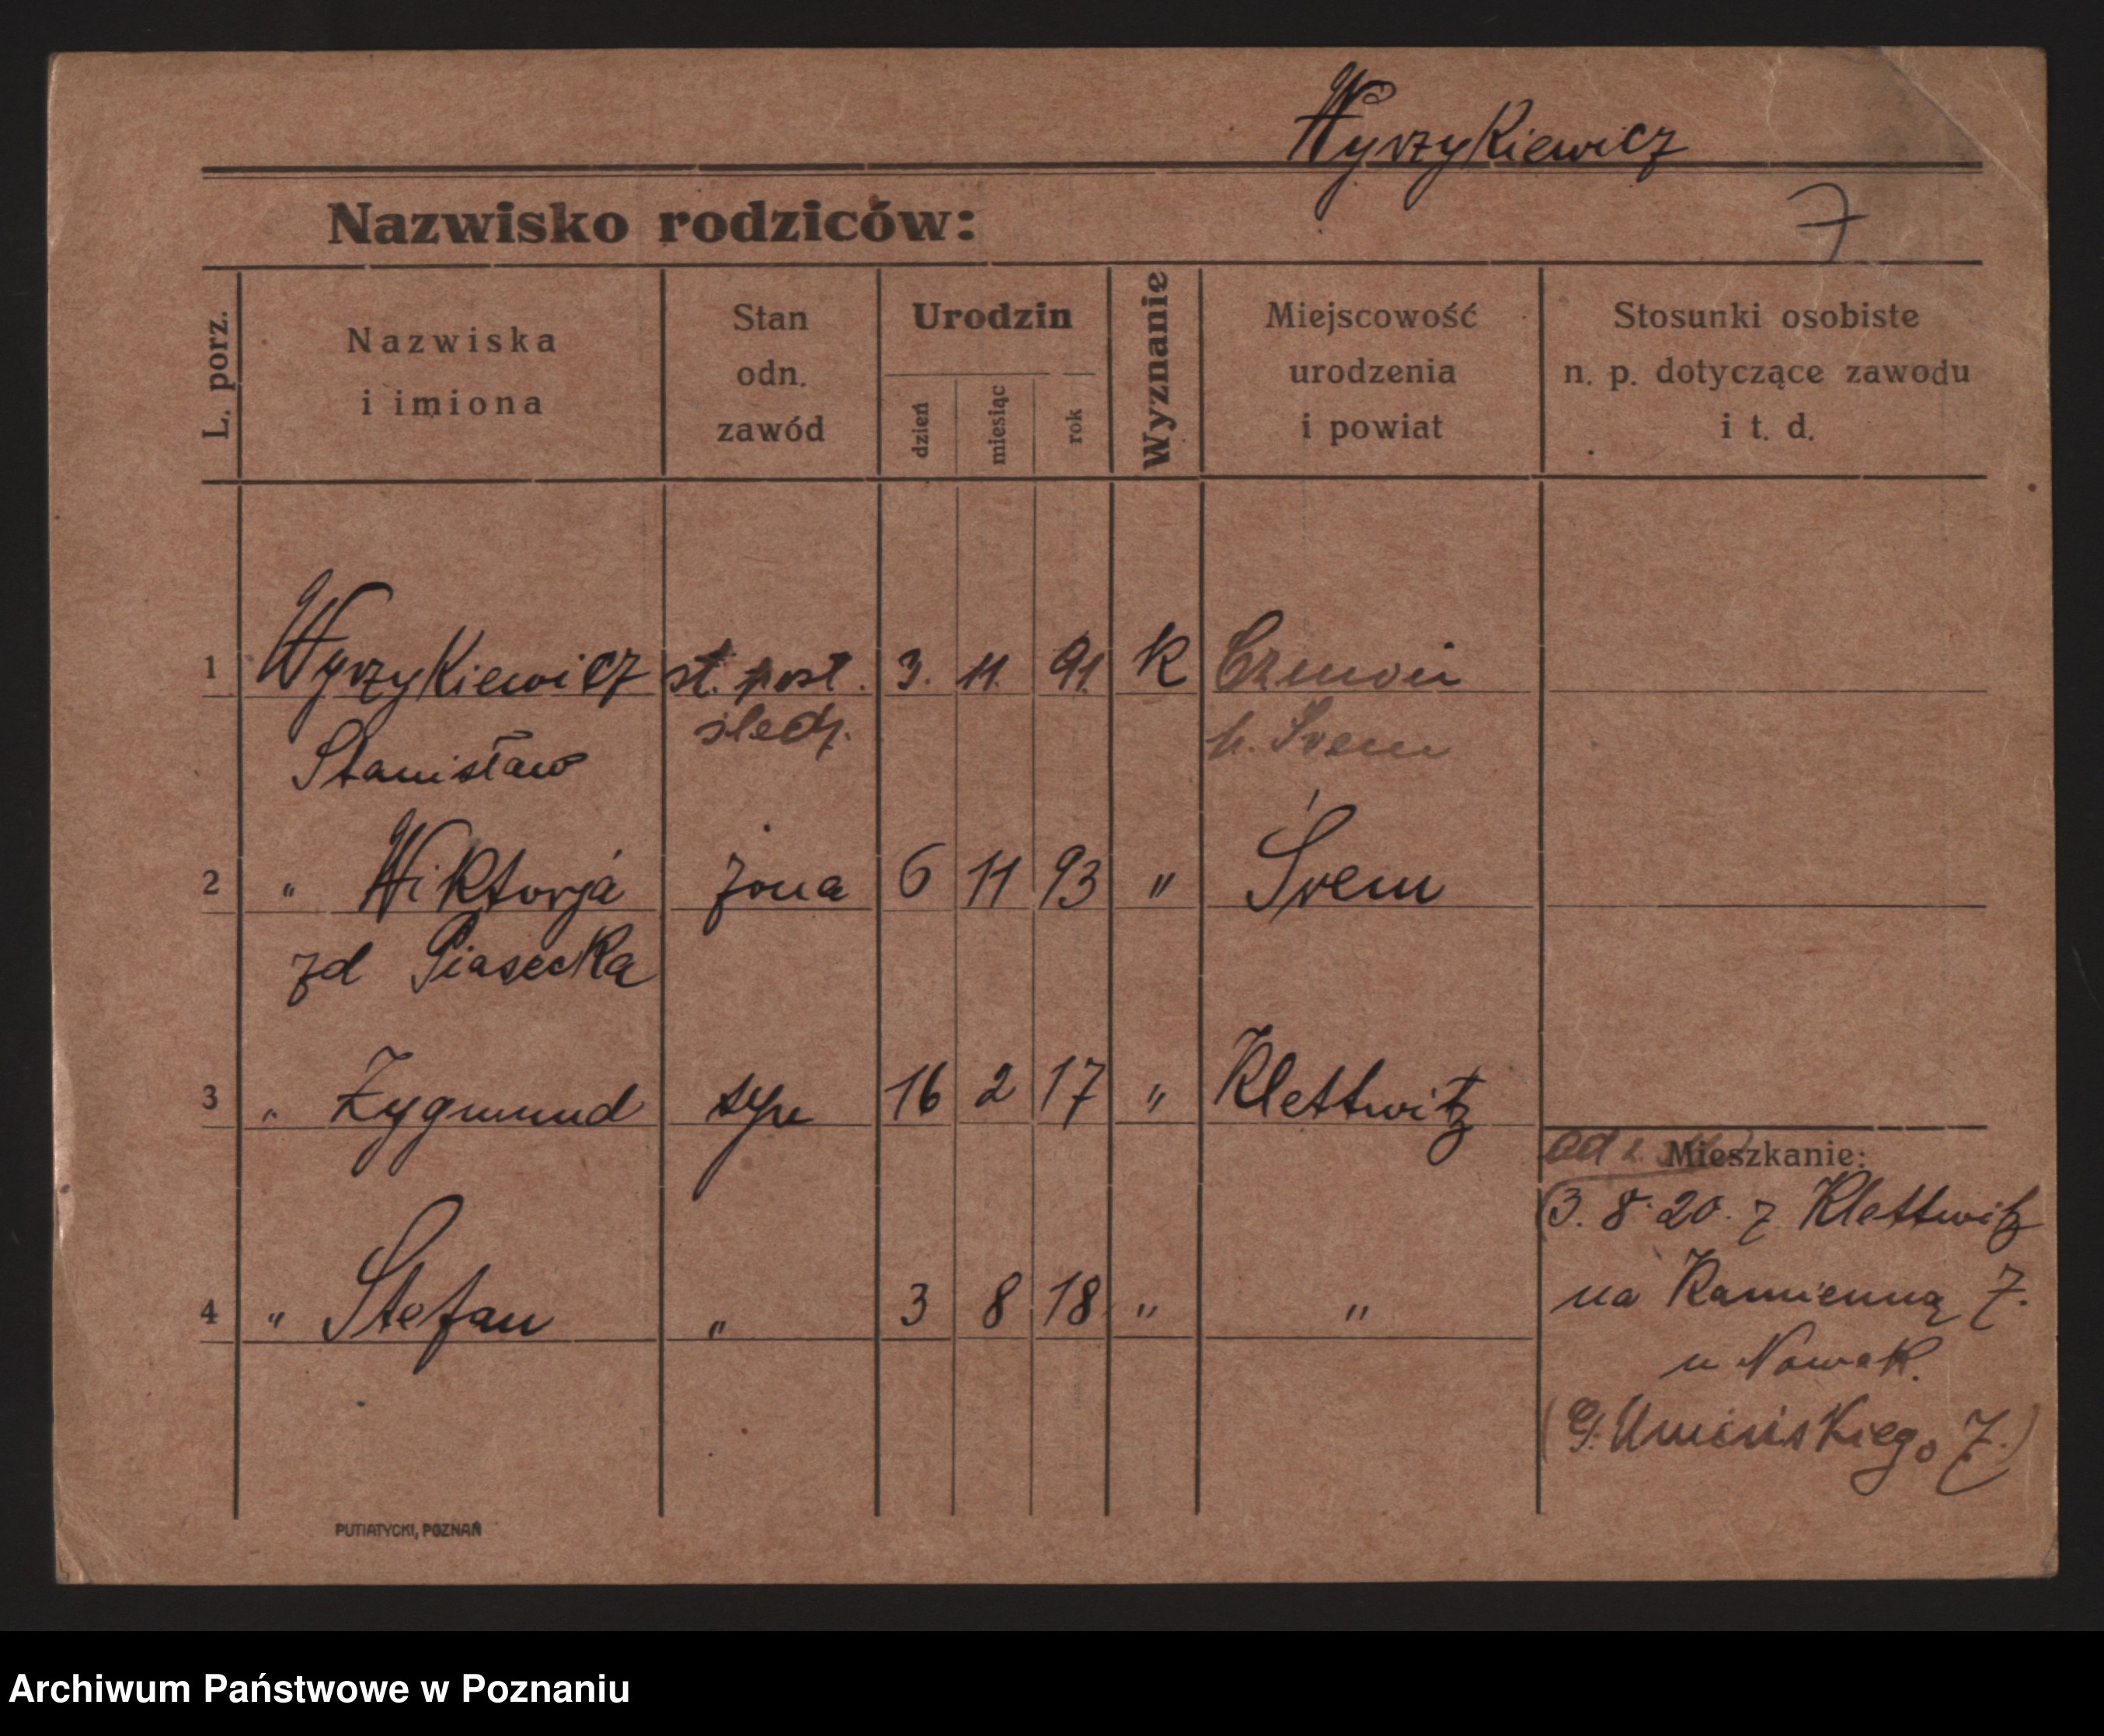 Wyrzykiewicz
Nazwisko rodziców:
7
L. porz.
Nazwiska
i imiona
Stan
odn.
zawód
Urodzin
dzień
miesiąc
rok
Wyznanie
Miejscowość
urodzenia
i powiat
Stosunki osobiste
n. p. dotyczące zawodu
i t. d.
1 Wyrzykiewicz st. post. 3. 11. 91. k
Stanisław śledz. p. Śrem
2 " Wiktorja żona 6 11 93 " Śrem
zd Piasecka
3 " Zygmund syn 16 2 17 " Klettwitz
od Mieszkanie:
3. 8. 20. z Klettwitz
na Kamienną 7.
4 " Stefan " 3 8 18 " "
u Nowak.
(G. Umińskiego 7.)
PUTIATYCKI, POZNAŃ
Archiwum Państwowe w Poznaniu